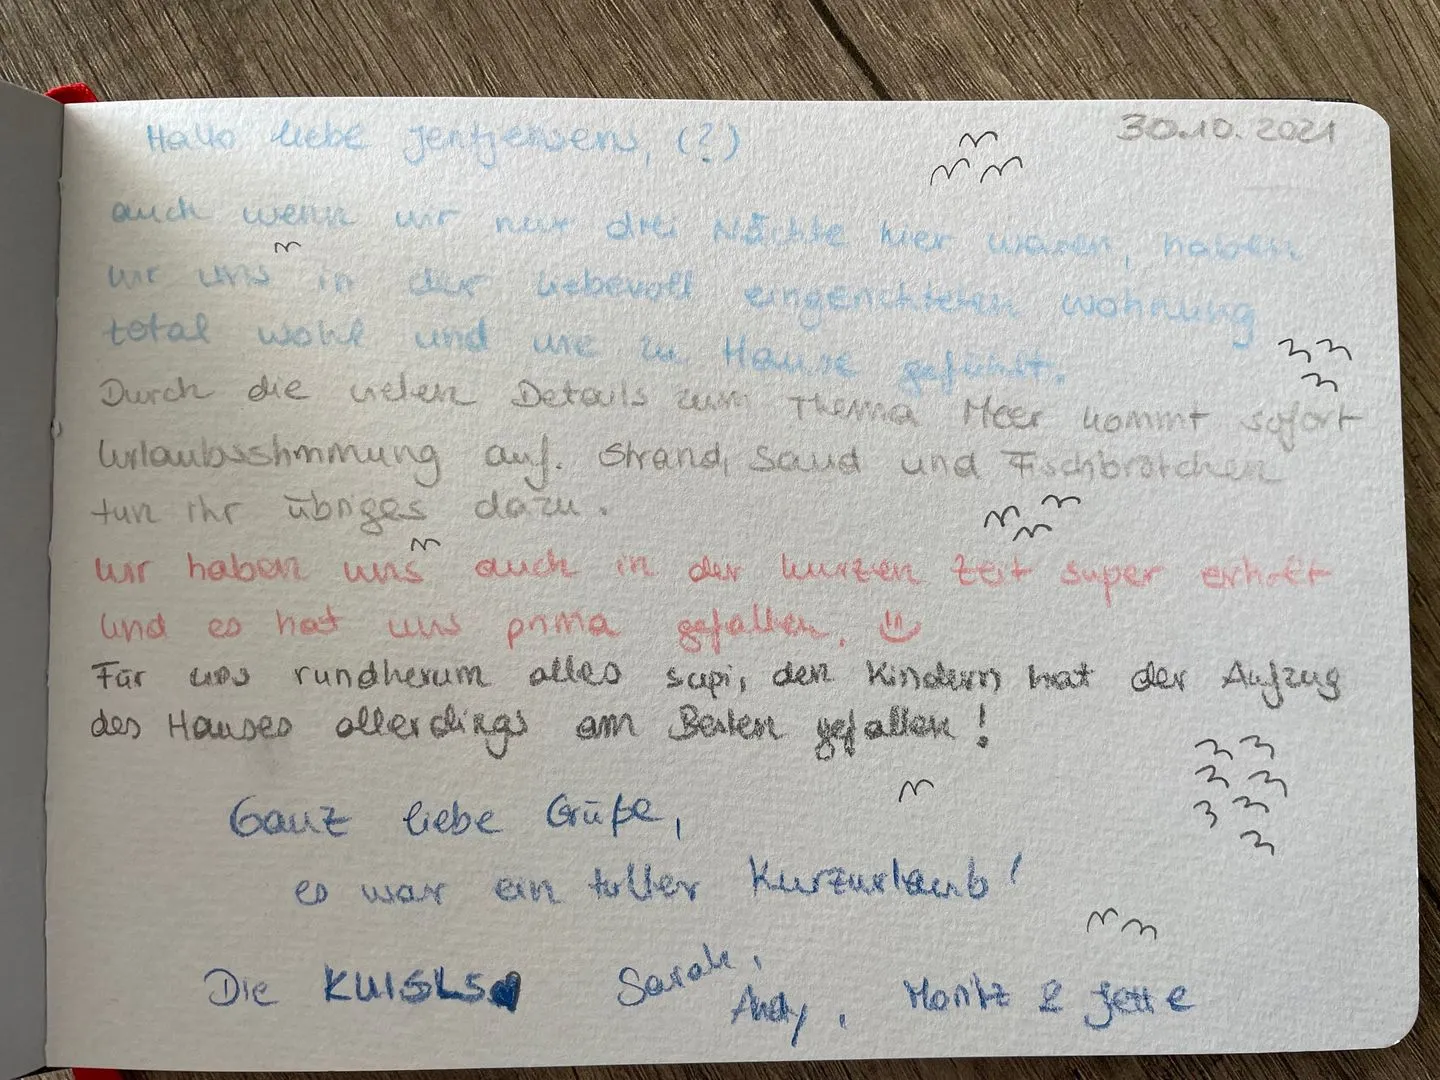 30.10.2021
Hallo liebe Jentjensens, (?)
auch wenn wir nur drei Nächte hier waren, haben
wir uns in der liebevoll eingerichteten Wohnung
total wohl und wie zu Hause gefühlt.
Durch die vielen Details zum Thema Meer kommt sofort
Urlaubsstimmung auf. Strand, Sand und Fischbrötchen
tun ihr übriges dazu.
Wir haben uns auch in der kurzen Zeit super erholt
und es hat uns prima gefallen.
Für uns rundherum alles supi, den Kindern hat der Aufzug
des Hauses allerdings am Besten gefallen!
Ganz liebe Grüße,
es war ein toller Kurzurlaub!
Die Sarah,
Andy, Moritz & Jette